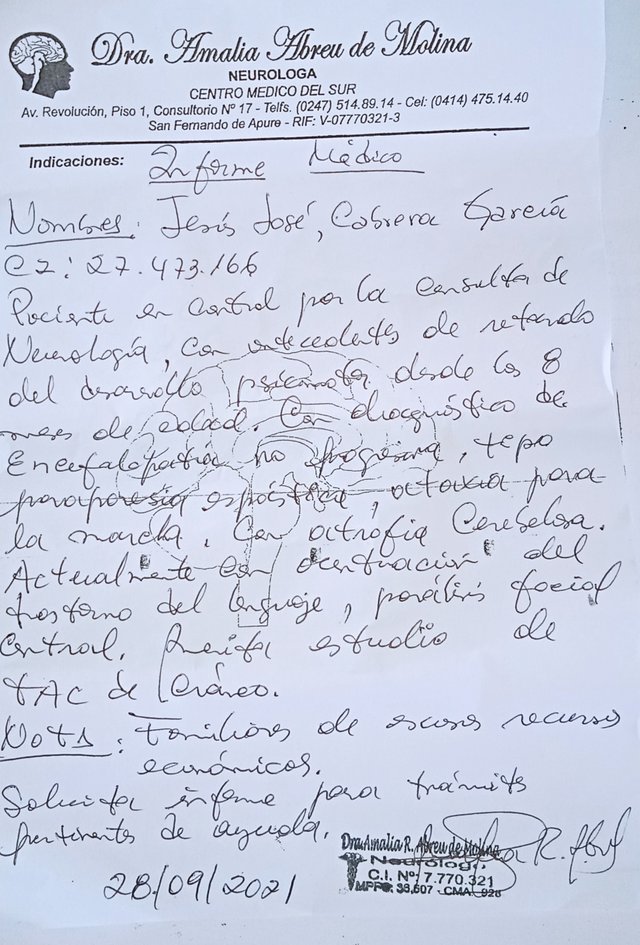 Dra. Amalia Abreu de Molina
NEUROLOGA
CENTRO MEDICO DEL SUR
Av. Revolución, Piso 1, Consultorio Nº 17 - Telfs. (0247) 514.89.14 - Cel: (0414) 475.14.40
San Fernando de Apure - RIF: V-07770321-3
Indicaciones: Informe Médico
Nombres: Jesús José, Cabrera García
CI: 27.473.166
Paciente en control por la consulta de
Neurología, con antecedentes de retardo
del desarrollo psicomotor desde los 8
meses de edad. Con diagnóstico de
Encefalopatía no progresiva, tipo
paraparesia espástica, ataxia para
la marcha. Con atrofia Cerebelosa.
Actualmente con acentuación del
trastorno del lenguaje, parálisis facial
Central. Amerita estudio de
TAC de Cráneo.
NOTA: Familiares de escasos recursos
económicos.
Solicita informe para trámites
pertinentes de ayuda.
Dra. Amalia R. Abreu de Molina
Neurólogo
C.I. Nº 7.770.321
MPPS: 38.607 - CMA. 928
28/09/2021